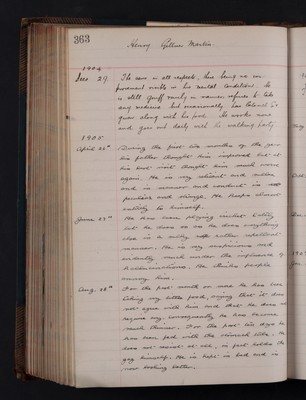 363
Henry Gillow Martin.
1904
Dec 29. The case in all respects, there being no im-
provement visible in his mental condition. He
is still gruff surly in manner, refuses to take
any medicine but occasionally has Calomel
given along with his food. He works none
and goes out daily with the walking party.
1905
April 26th During the first two months of the year
his father thought him improved but at
his last visit thought him much worse
again. He is very silent and sullen
and in manner and conduct is
peculiar and strange. He keeps almost
entirely to himself.
June 27th He has been playing cricket lately
but he does so as he does anything
else in a sulky rather
manner. He is very suspicious and
evidently much under the influence of
hallucinations. He thinks people
annoy him.
Aug. 28th For the past month or more he has been
taking very little food, saying that it does
not agree with him and that he does not
require any. Consequently he has become
much thinner. For the past two days he
has been fed with the stomach tube. He
does not resist at all, in fact holds the
gag himself. He is kept in bed and is
now looking better.